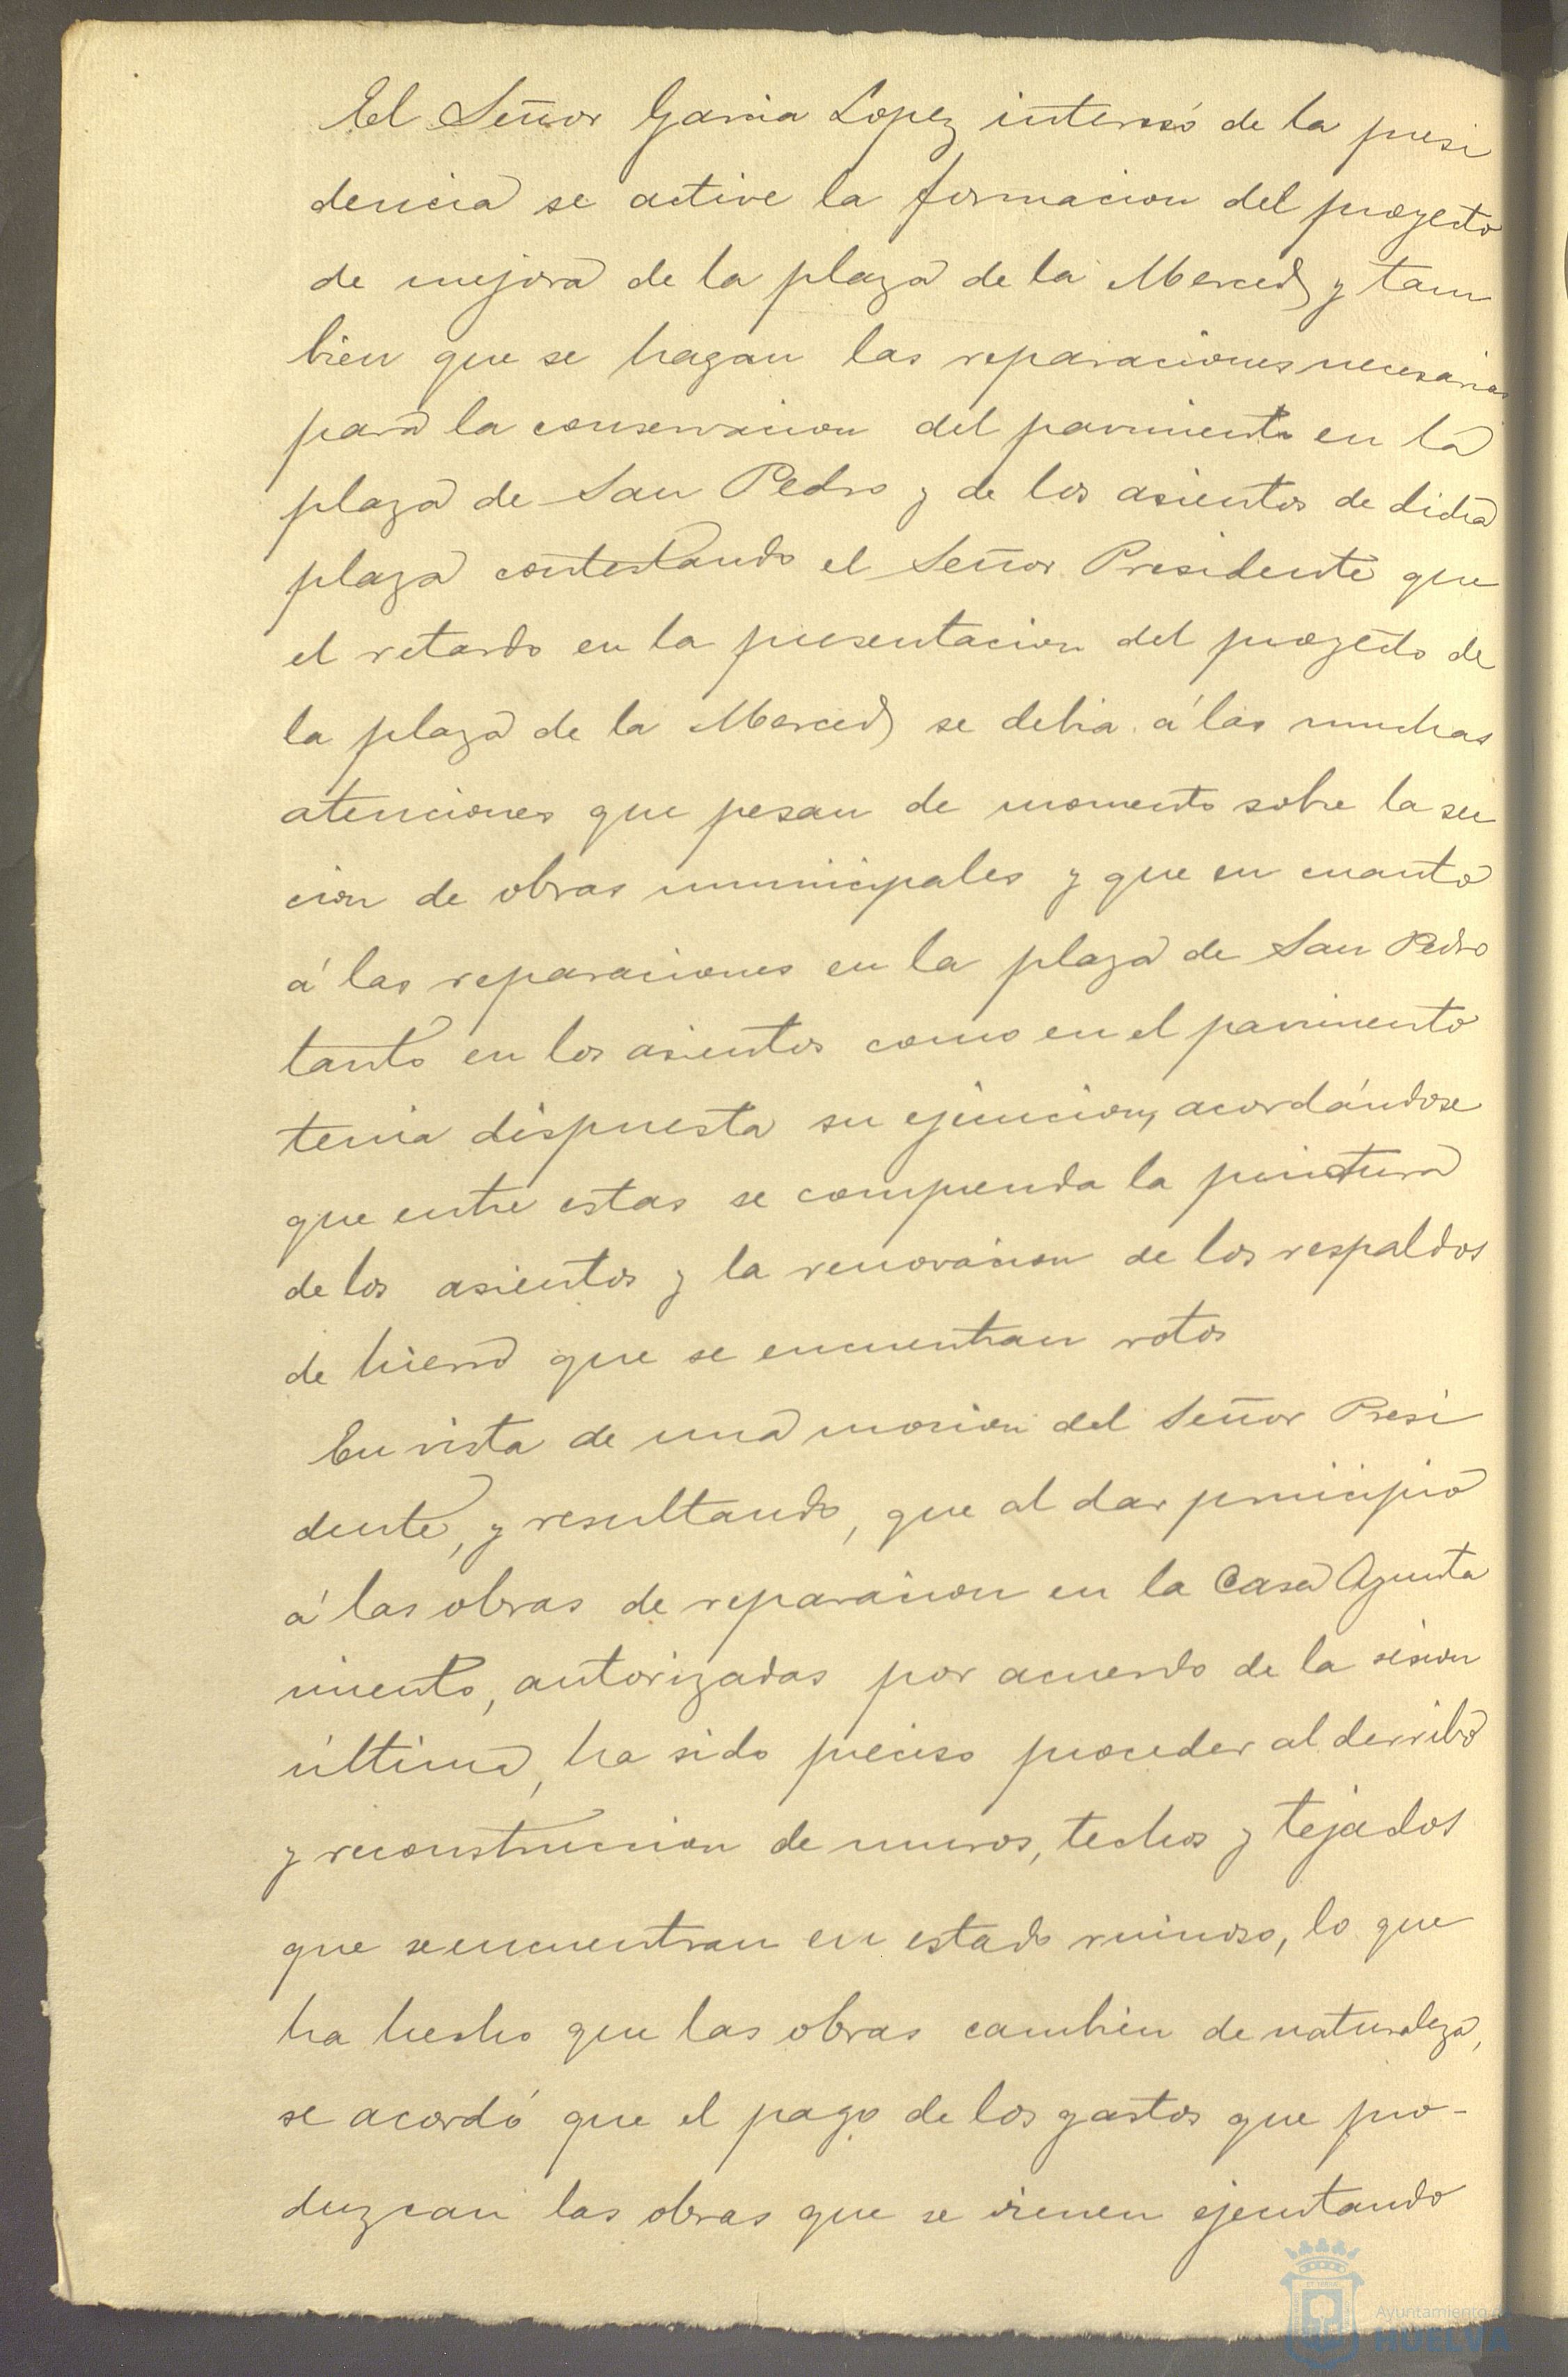 El Señor Garcia Lopez interesó de la presi
dencia se active la formacion del proyecto
de mejora de la plaza de la Merced y tam
bien que se hagan las reparaciones necesarias
para la conservacion del pavimento en la
plaza de San Pedro y de los asientos de dicha
plaza contestando el Señor Presidente que
el retardo en la presentacion del proyecto de
la plaza de la Merced se debia á las muchas
atenciones que pesan de momento sobre la sec
cion de obras municipales y que en cuanto
á las reparaciones en la plaza de San Pedro
tanto en los asientos como en el pavimento
tenia dispuesta su ejecucion, acordándose
que entre estas se comprenda la pintura
de los asientos y la renovacion de los respaldos
de hierro que se encuentran rotos
En vista de una mocion del Señor Presi
dente, y resultando, que al dar principio
á las obras de reparacion en la Casa Ayunta
miento, autorizadas por acuerdo de la sesion
última, ha sido preciso proceder al derribo
y reconstruccion de muros, techos y tejados
que se encuentran en estado ruinoso, lo que
ha hecho que las obras cambien de naturaleza,
se acordó que el pago de los gastos que pro-
duzcan las obras que se vienen ejecutando
Ayuntamiento de
HUELVA